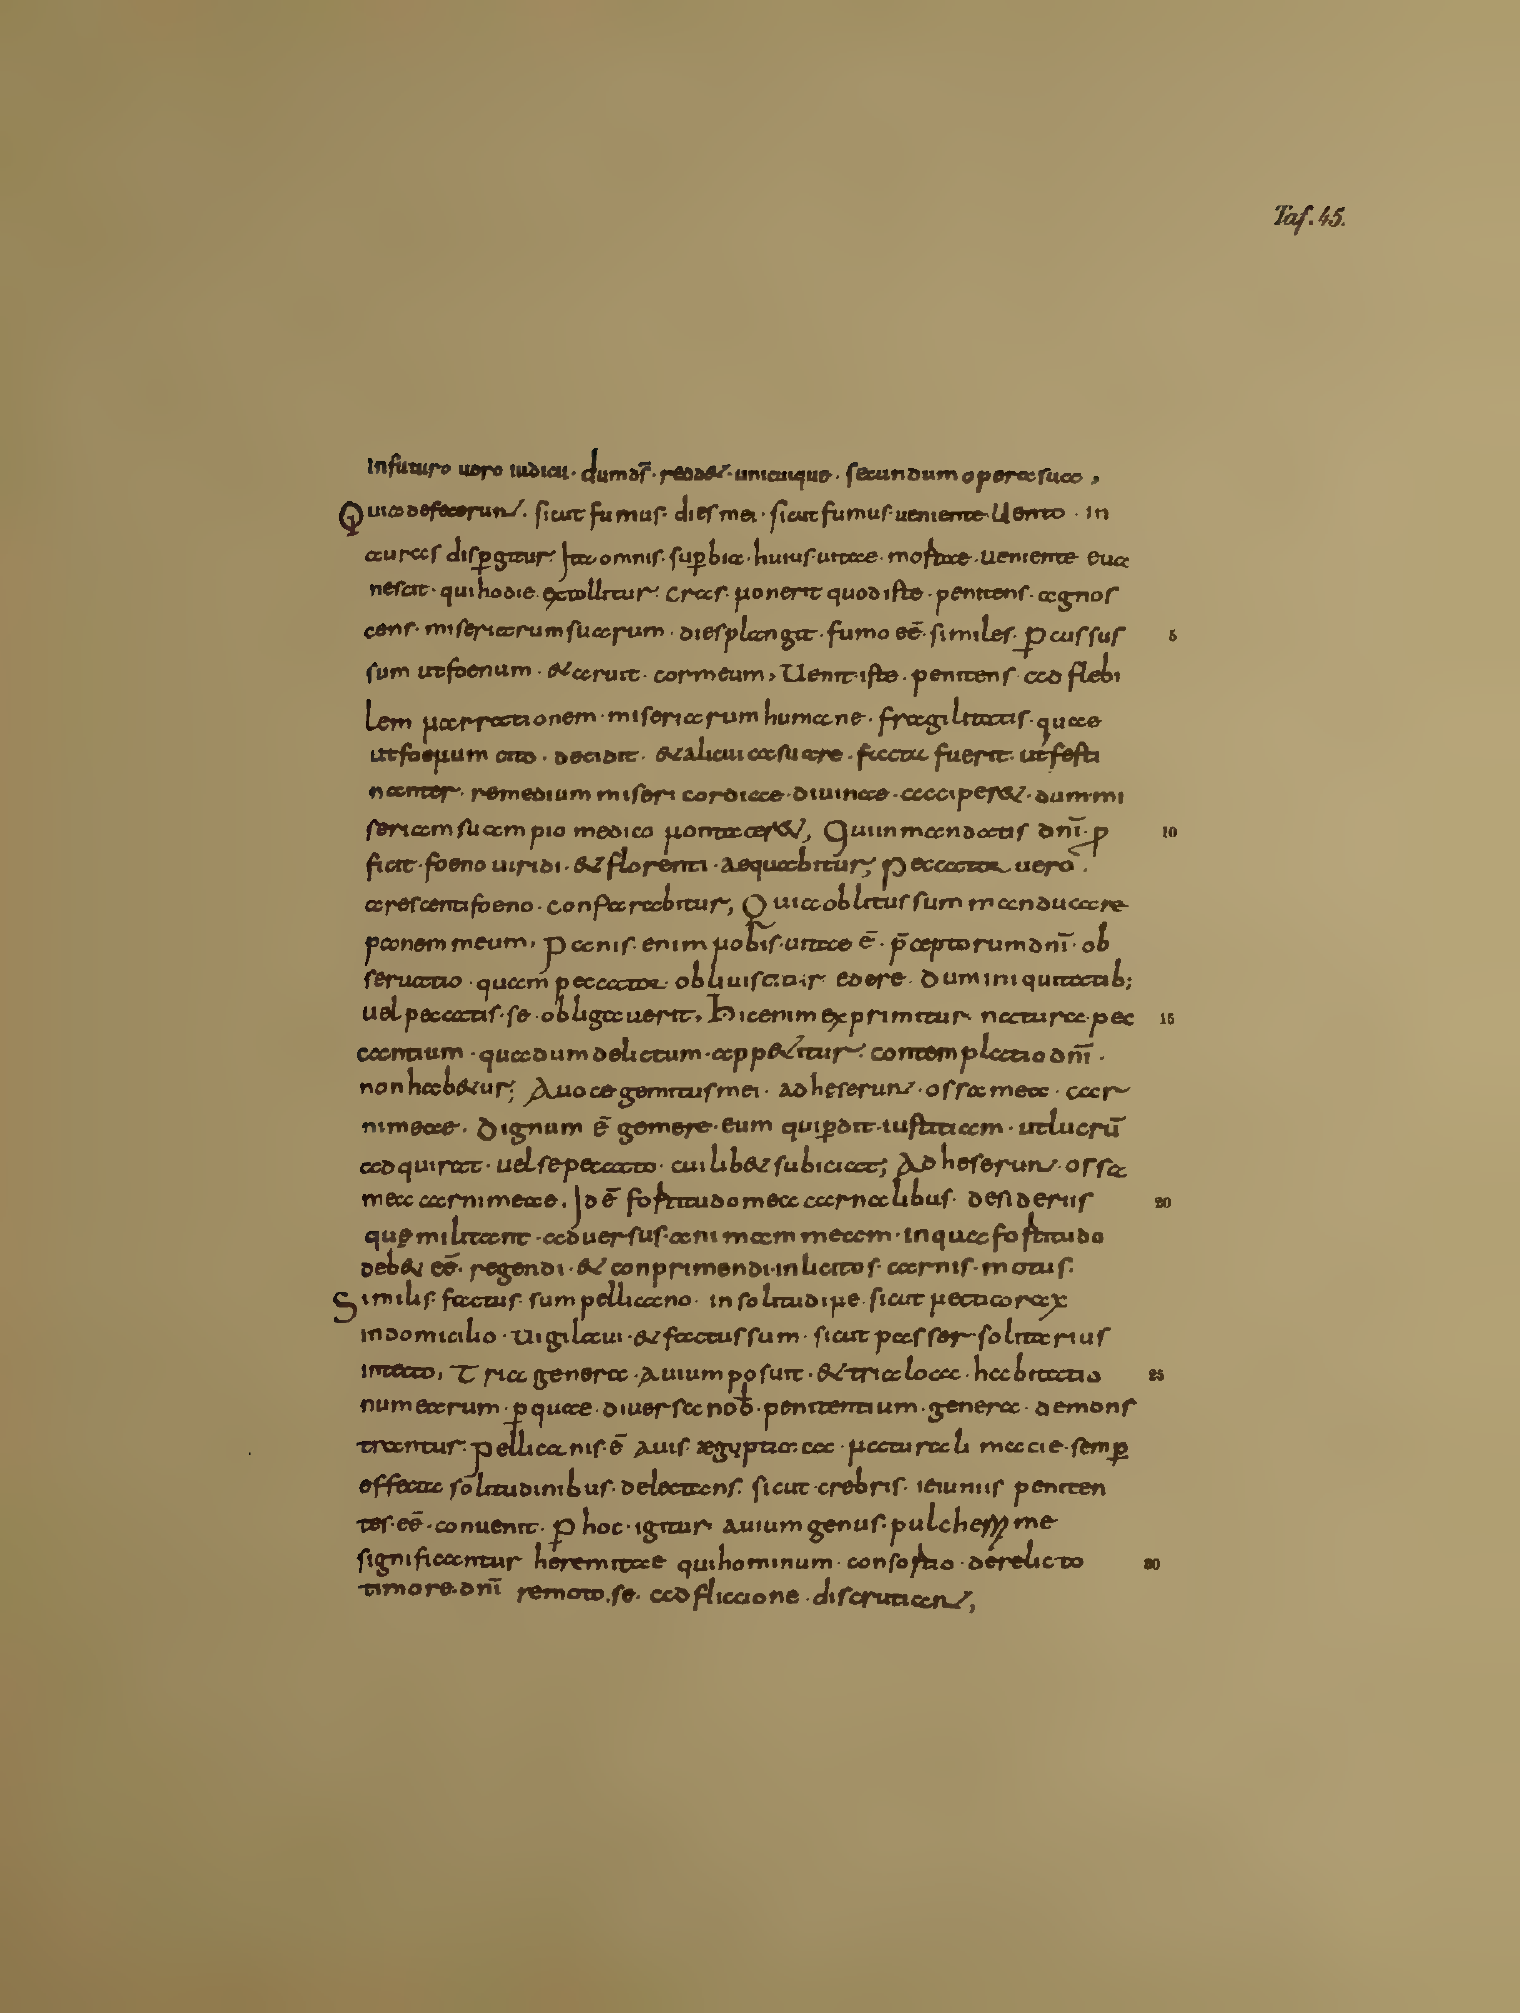 Taf. 45.
In futuro uero iudicii · dum dſ̄ · reddet · unicuique · ſecundum opera ſua ,
Quia defecerunt . ſicut fumus · dieſ mei · ſicut fumuſ · ueniente uento · in
auraſ diſꝑgitur · Ita omniſ · ſuꝑbia · huiuſ · uitae · mortae · ueniente eua
neſcit · qui hodie · extollitur · craſ · ponerit quod iſte · penitenſ · agnoſ
cenſ · miſeriarum ſuarum · dieſ plangit · fumo eē · ſimileſ · ꝑcuſſuſ 5
ſum ut foenum · & aruit · cor meum , Uenit · iſte · penitenſ · ad flebi
lem narrationem · miſeriarum humane · fragilitatiſ · quae
ut foenum cito · decidit · & alicui caſu are · facta fuerit · ut feſti
nanter · remedium miſeri cordiae · diuinae · acciper& · dum mi
ſeriam ſuam pio medico , Qui in mandatiſ dn̄i · ꝓ 10
ficit · foeno uiridi · & florenti · aequabitur ; Peccator uero ·
areſcenti foeno · conparabitur , Quia oblituſ ſum manducare
panem meum , Paniſ · enim nobiſ · uitae ē · p̄ceptorum dn̄i · ob
ſeruatio · quam peccator obliuiſcitur edere · Dum iniquitatib;
uel peccatiſ · ſe · obligauerit , Hic enim exprimitur natura · pec 15
cantium · quae dum delictum · app&itur · contemplatio dn̄i ·
non hab&ur ; A uoce gemituſ mei · adheſerunt · oſſa mea · car
ni meae · Dignum ē gemere · eum qui ꝑdit · iuſtitiam · ut lucrū
adquirat · uel ſe peccato · cui lib& ſubiciat ; Adheſerunt · oſſa
mea carni meae . Id ē fortitudo mea carnalibuſ · deſideriiſ 20
quę militant · aduerſuſ · animam meam · in qua fortitudo
deb& eē · regendi · & conprimendi · inlicitoſ · carniſ · motuſ .
Similiſ · factuſ · ſum pellicano · in ſolitudine · ſicut neticorax
in domicilio · uigilaui · & factuſ ſum · ſicut paſſer · ſolitariuſ
in tecto , Tria genera · auium poſuit · & tria loca · habitatio 25
num earum · ꝑ quae · diuerſa nob̄ · penitentium · genera · demonſ
trantur · Pellicaniſ · ē auiſ · ægyptia naturali macie · ſemꝑ
effecta ſolitudinibuſ · delectanſ · ſicut · crebriſ · ieiuniiſ peniten
teſ · eē · conuenit · Ꝑ hoc · igitur auium genuſ · pulcherrime
ſignificantur heremitae qui hominum · conſortio · derelicto 30
timore · dn̄i remoto · ſe · adfliccione · diſcruciant ,